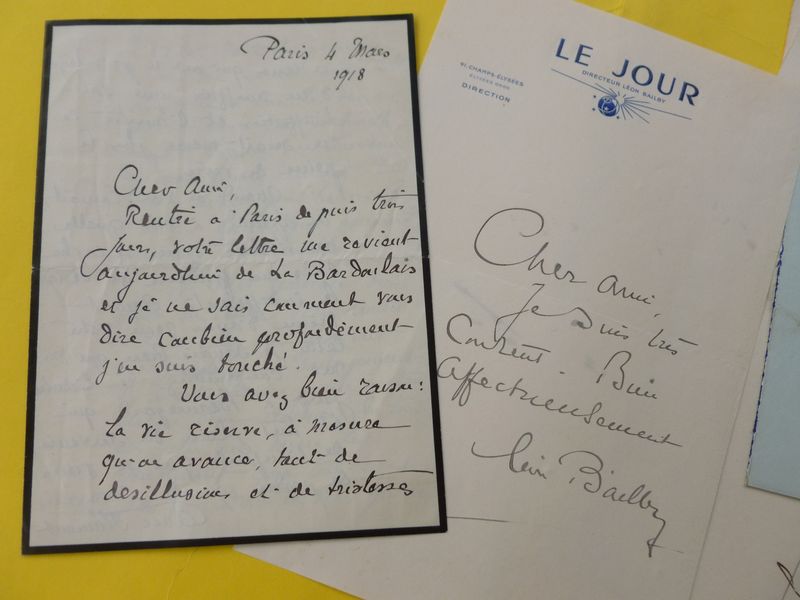 Paris 4 Mars
1918
Cher Ami,
Rentré à Paris depuis trois
jours, votre lettre me revient
aujourd'hui de La Bardoulais
et je ne sais comment vous
dire combien profondément
j'en suis touché.
Vous avez bien raison:
la vie réserve, à mesure
qu'on avance, tant de
désillusions et de tristesses
LE JOUR
DIRECTEUR LÉON BAILBY
91, CHAMPS-ÉLYSÉES
DIRECTION
Cher Ami,
Je suis très
Content. Bien
affectueusement
Léon Bailby